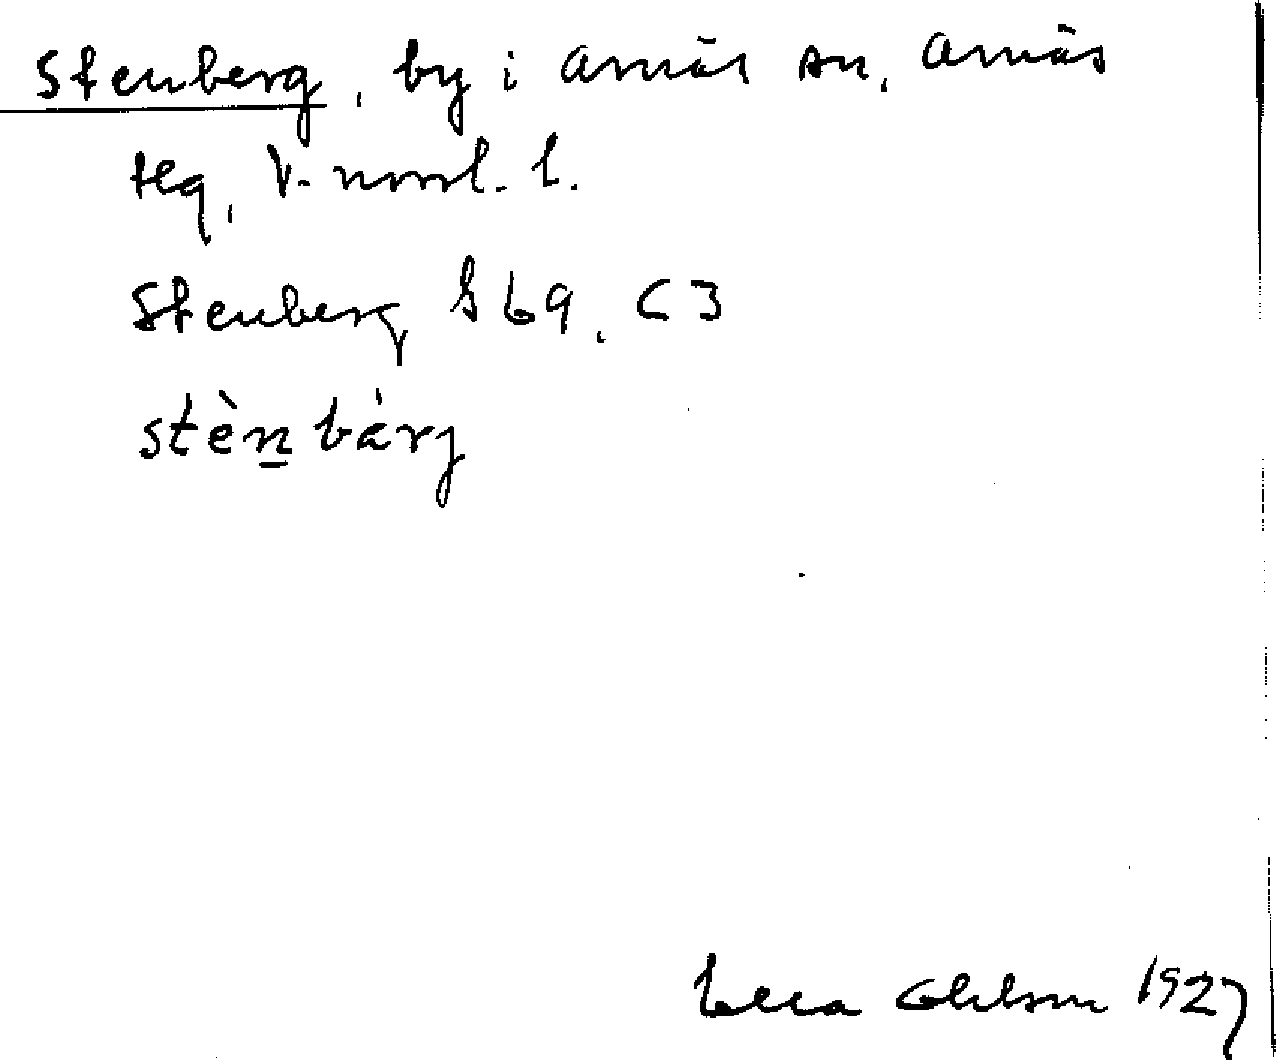 Stenberg, by i Arnäs sn, Arnäs
tlg, V. norrl. l.
Stenberg S 69, C 3
stèn bárg
Bella Ohlson 1927